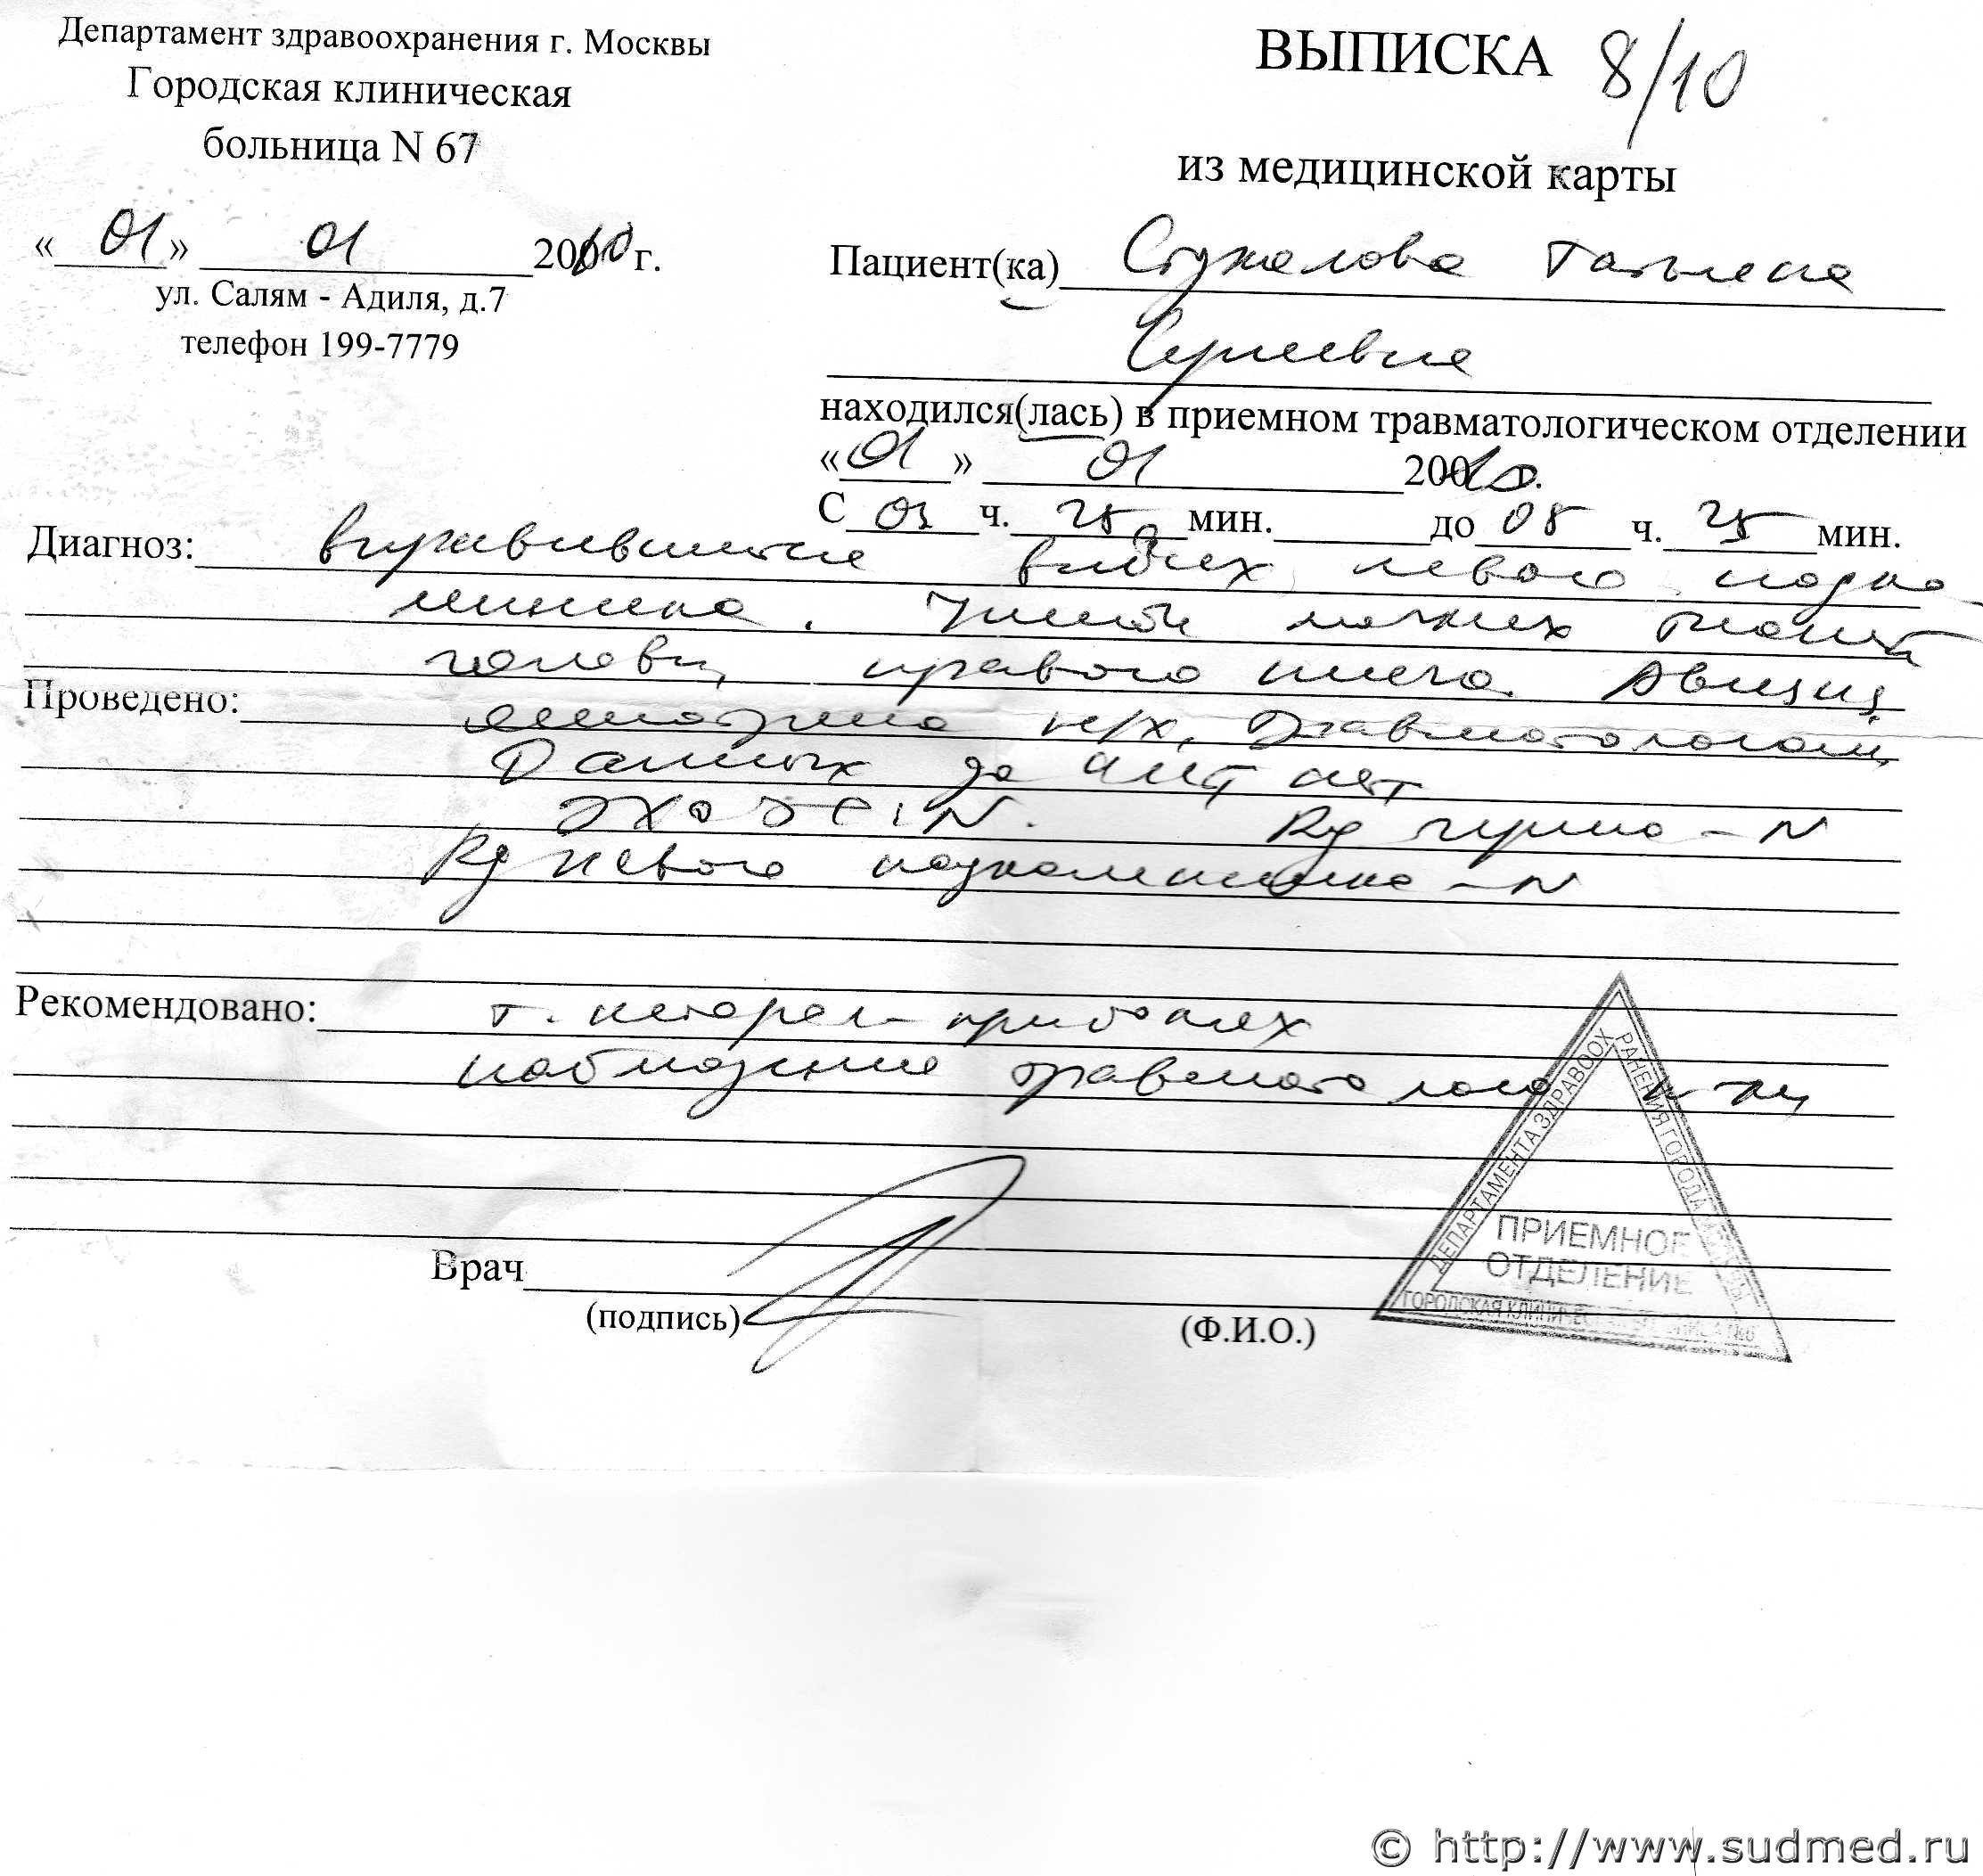 Департамент здравоохранения г. Москвы
Городская клиническая
больница N 67
«01» 01 2010 г.
ул. Салям - Адиля, д.7
телефон 199-7779
ВЫПИСКА 8/10
из медицинской карты
Пациент(ка) Татьяна
Сергеевна
находился(лась) в приемном травматологическом отделении
«01» 01 2010.
С 03 ч. 25 мин. до 05 ч. 25 мин.
Диагноз: вправившийся вывих левого надко-
ленника. Ушиб мягких тканей
головы, правого плеча.
Проведено: осмотрена н/х, травматологом,
Данных за ЧМТ нет
ЭХО N. Rg черепа - N
Rg левого надколенника - N
Рекомендовано: т. кеторол при болях
наблюдение травматолога
ДЕПАРТАМЕНТА ЗДРАВООХРАНЕНИЯ ГОРОДА МОСКВЫ
ПРИЕМНОЕ
ОТДЕЛЕНИЕ
ГОРОДСКАЯ КЛИНИЧЕСКАЯ
Врач
(подпись) (Ф.И.О.)
© http://www.sudmed.ru